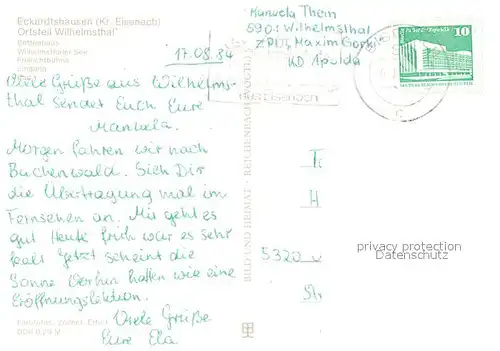 Eckardtshausen (Kr. Eisenach)
Ortsteil Wilhelmsthal
Wilhelmsthaler See
17.08.84
Viele Grüße aus Wilhelms-
thal sendet Euch Eure
Manuela.
Morgen fahren wir nach
Buchenwald. Sieh Dir
die Übertragung mal im
Fernsehen an. Mir geht es
gut Heute früh war es sehr
kalt Jetzt scheint die
Sonne Vorhin hatten wie eine
Eröffnungslektion.
Viele Grüße
Eure Ela
BILD UND HEIMAT REICHENBACH (VOGTL)
Manuela Thein
5901 Wilhelmsthal
ZPL, Maxim Gorki
KD Apolda
10
5320
privacy protection
Datenschutz